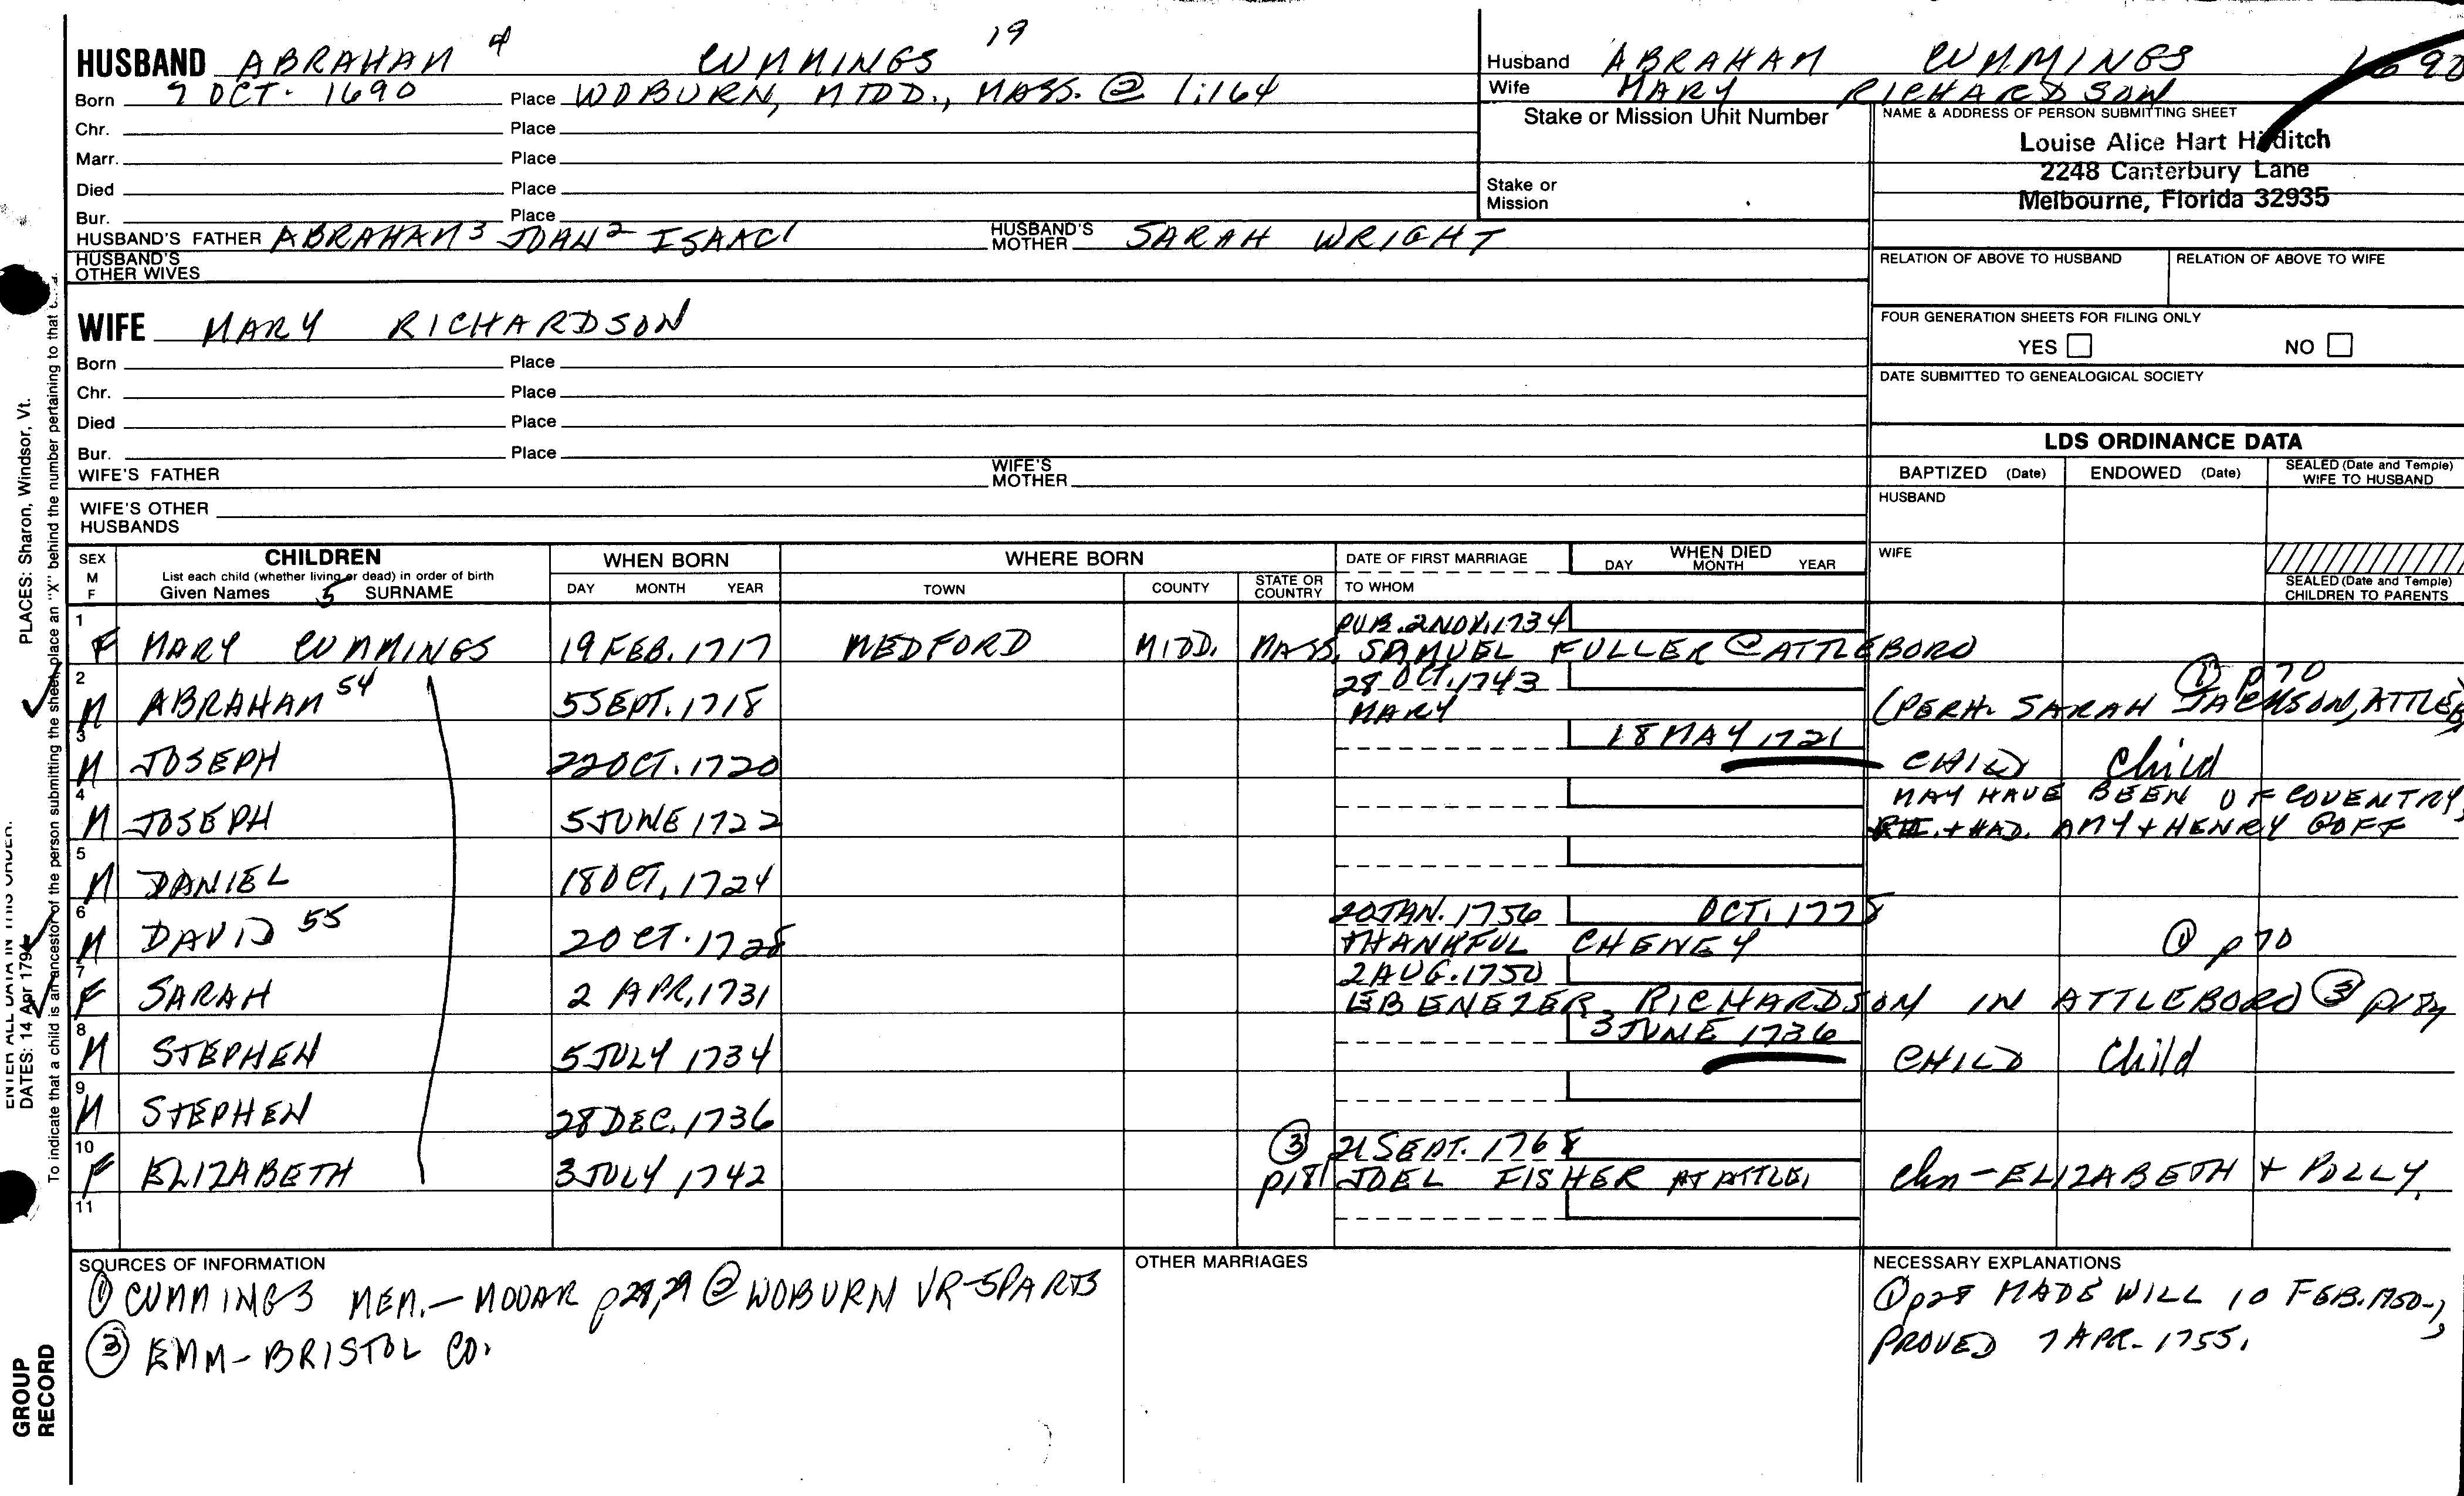 HUSBAND ABRAHAM 4 CUMMINGS 19
Born 7 OCT. 1690 Place WOBURN, MIDD., MASS. @ 1:164
Chr. Place
Marr. Place
Died Place
Bur. Place
HUSBAND'S FATHER ABRAHAM3 JOHN2 ISAAC1 HUSBAND'S MOTHER SARAH WRIGHT
HUSBAND'S OTHER WIVES
Husband ABRAHAM CUMMINGS 1690
Wife MARY RICHARDSON
Stake or Mission Unit Number
Stake or Mission
NAME & ADDRESS OF PERSON SUBMITTING SHEET
Louise Alice Hart Hilditch
2248 Canterbury Lane
Melbourne, Florida 32935
RELATION OF ABOVE TO HUSBAND RELATION OF ABOVE TO WIFE
FOUR GENERATION SHEETS FOR FILING ONLY
YES NO
DATE SUBMITTED TO GENEALOGICAL SOCIETY
WIFE MARY RICHARDSON
Born Place
Chr. Place
Died Place
Bur. Place
WIFE'S FATHER WIFE'S MOTHER
WIFE'S OTHER HUSBANDS
LDS ORDINANCE DATA
BAPTIZED (Date) ENDOWED (Date) SEALED (Date and Temple) WIFE TO HUSBAND
HUSBAND
WIFE
SEALED (Date and Temple) CHILDREN TO PARENTS
SEX M F
CHILDREN
List each child (whether living or dead) in order of birth
Given Names 5 SURNAME
WHEN BORN
DAY MONTH YEAR
WHERE BORN
TOWN COUNTY STATE OR COUNTRY
DATE OF FIRST MARRIAGE
TO WHOM
WHEN DIED
DAY MONTH YEAR
1 PUB. 2 NOV. 1734
F MARY CUMMINGS 19 FEB. 1717 MEDFORD MIDD. MASS. SAMUEL FULLER @ ATTLEBORO
2 28 OCT. 1743 ① p70
M ABRAHAM 54 5 SEPT. 1718 MARY (PERH. SARAH JACKSON, ATTLEB
3 18 MAY 1721
M JOSEPH 22 OCT. 1720 CHILD Child
4 MAY HAVE BEEN OF COVENTRY,
M JOSEPH 5 JUNE 1722 RI. + HAD. AMY + HENRY GOFF
5
M DANIEL 18 OCT. 1724
6 20 JAN. 1756 OCT. 1778
M DAVID 55 2 OCT. 1728 THANKFUL CHENEY ① p70
7 2 AUG. 1750
F SARAH 2 APR. 1731 EBENEZER RICHARDSON IN ATTLEBORO ③
8 3 JUNE 1736
M STEPHEN 5 JULY 1734 CHILD Child
9
M STEPHEN 28 DEC. 1736
10 ③ 21 SEPT. 1768
F ELIZABETH 3 JULY 1742 p181 JOEL FISHER AT ATTLE. chn - ELIZABETH + POLLY.
11
SOURCES OF INFORMATION
① CUMMINGS MEM. - MOOAR p28, 29 @ WOBURN VR - 5 PARTS
③ EMM - BRISTOL CO.
OTHER MARRIAGES
NECESSARY EXPLANATIONS
① p28 MADE WILL 10 FEB. 1750-1,
PROVED 7 APR. 1755.
PLACES: Sharon, Windsor, Vt.
ENTER ALL DATA IN THIS ORDER:
DATES: 14 Apr 1794
To indicate that a child is an ancestor of the person submitting the sheet, place an "X" behind the number pertaining to that
GROUP
RECORD